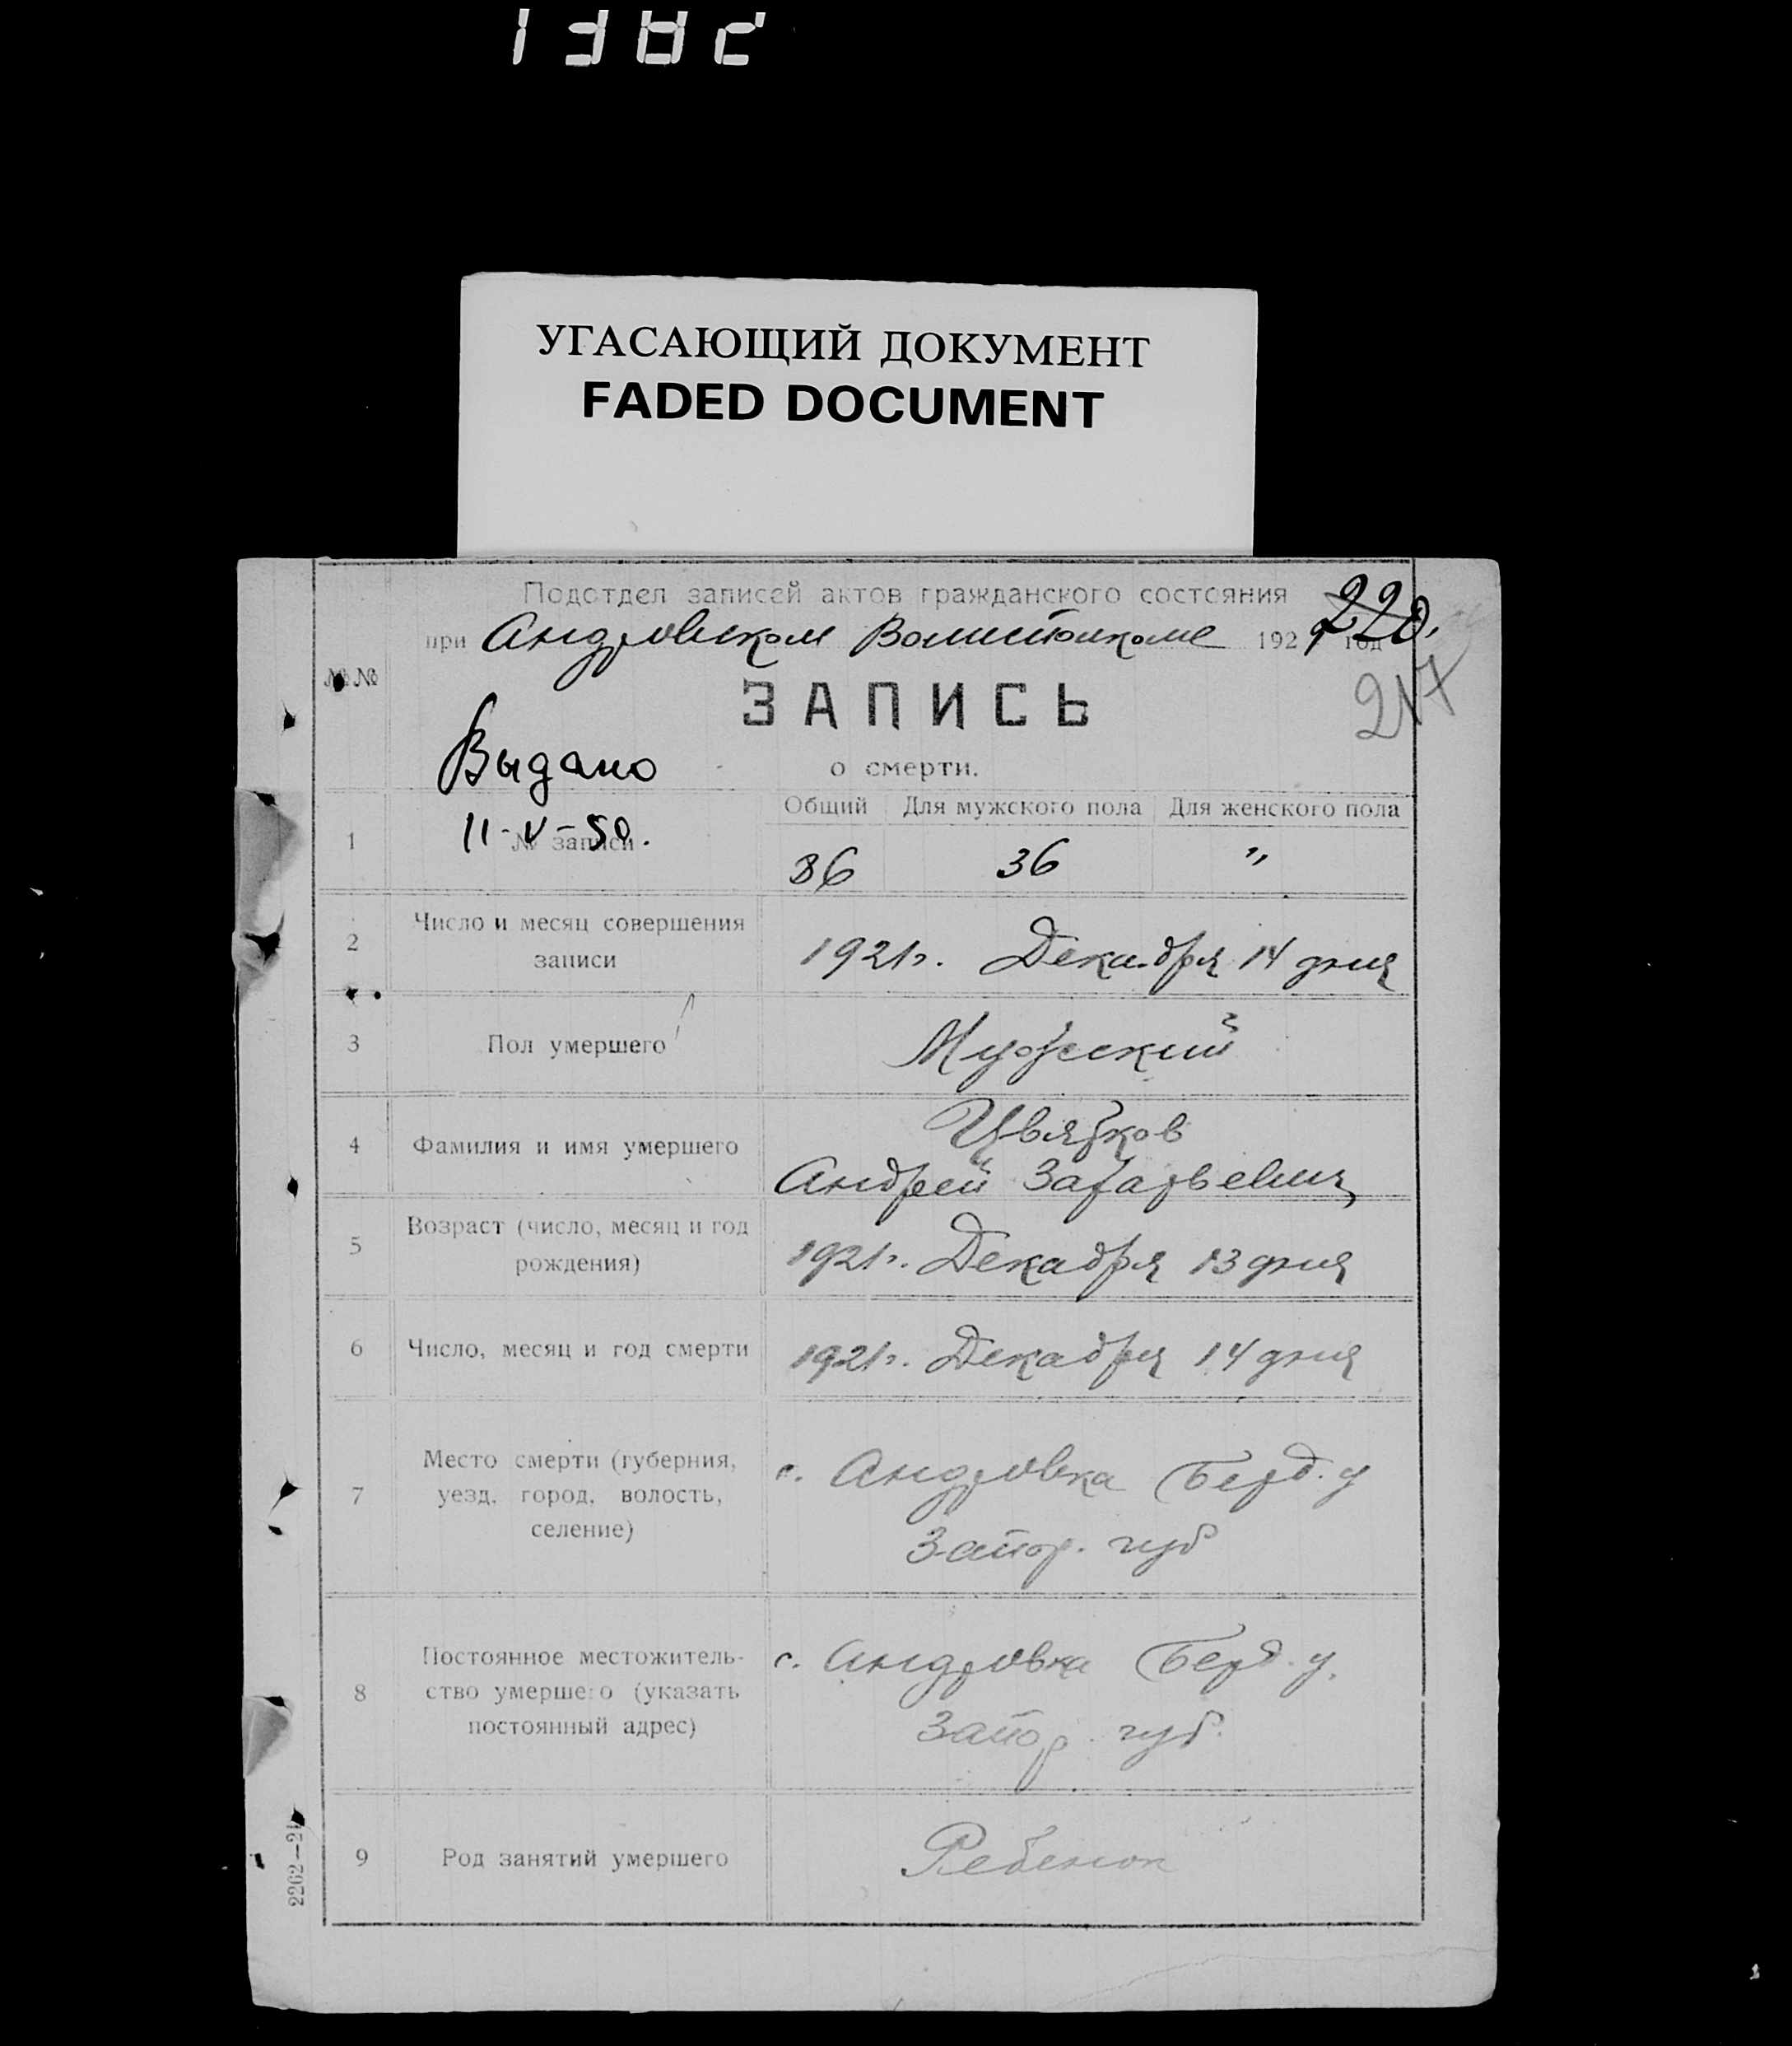 1382
УГАСАЮЩИЙ ДОКУМЕНТ
FADED DOCUMENT
Подотдел записей актов гражданского состояния 220.
при Андровском Волисполкоме 1921 год
№№
217
ЗАПИСЬ
Выдано
о смерти.
11-V-50.
Общий Для мужского пола Для женского пола
1 № записи 36 36 "
2 Число и месяц совершения
записи
1921г. Декабря 14 дня
3 Пол умершего Мужеский
4 Фамилия и имя умершего
Цвятков
Андрей Захарьевич
5 Возраст (число, месяц и год
рождения)
1921г. Декабря 13 дня
6 Число, месяц и год смерти 1921г. Декабря 14 дня
7 Место смерти (губерния,
уезд, город, волость,
селение)
с. Андровка Берд. у
Запор. губ
8 Постоянное местожитель-
ство умершего (указать
постоянный адрес)
с. Андровка Берд. у.
Запор. губ.
9 Род занятий умершего Ребенок
2262-21